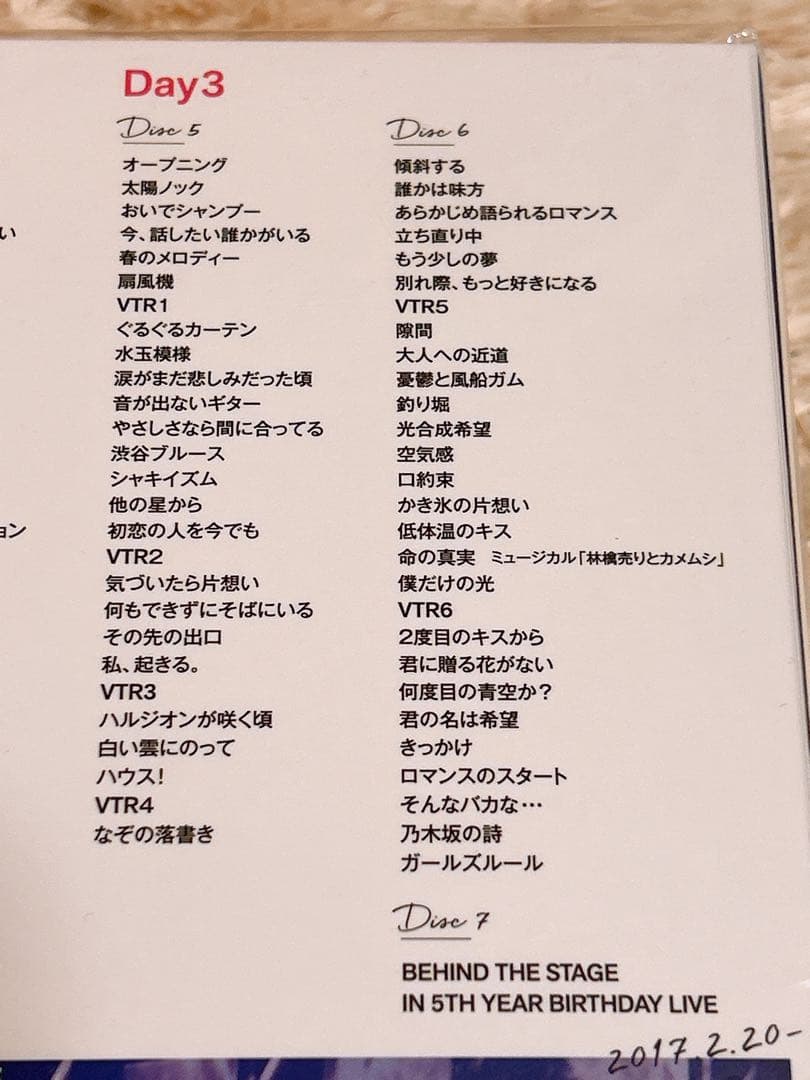 い
ョン
Day3
Disc 5
オープニング
太陽ノック
おいでシャンプー
今、話したい誰かがいる
春のメロディー
扇風機
VTR1
ぐるぐるカーテン
水玉模様
涙がまだ悲しみだった頃
音が出ないギター
やさしさなら間に合ってる
渋谷ブルース
シャキイズム
他の星から
初恋の人を今でも
VTR2
気づいたら片想い
何もできずにそばにいる
その先の出口
私、起きる。
VTR3
ハルジオンが咲く頃
白い雲にのって
ハウス!
VTR4
なぞの落書き
Disc 6
傾斜する
誰かは味方
あらかじめ語られるロマンス
立ち直り中
もう少しの夢
別れ際、もっと好きになる
VTR5
隙間
大人への近道
憂鬱と風船ガム
釣り堀
光合成希望
空気感
口約束
かき氷の片想い
低体温のキス
命の真実 ミュージカル「林檎売りとカメムシ」
僕だけの光
VTR6
2度目のキスから
君に贈る花がない
何度目の青空か?
君の名は希望
きっかけ
ロマンスのスタート
そんなバカな…
乃木坂の詩
ガールズルール
Disc 7
BEHIND THE STAGE
IN 5TH YEAR BIRTHDAY LIVE
2017.2.20-